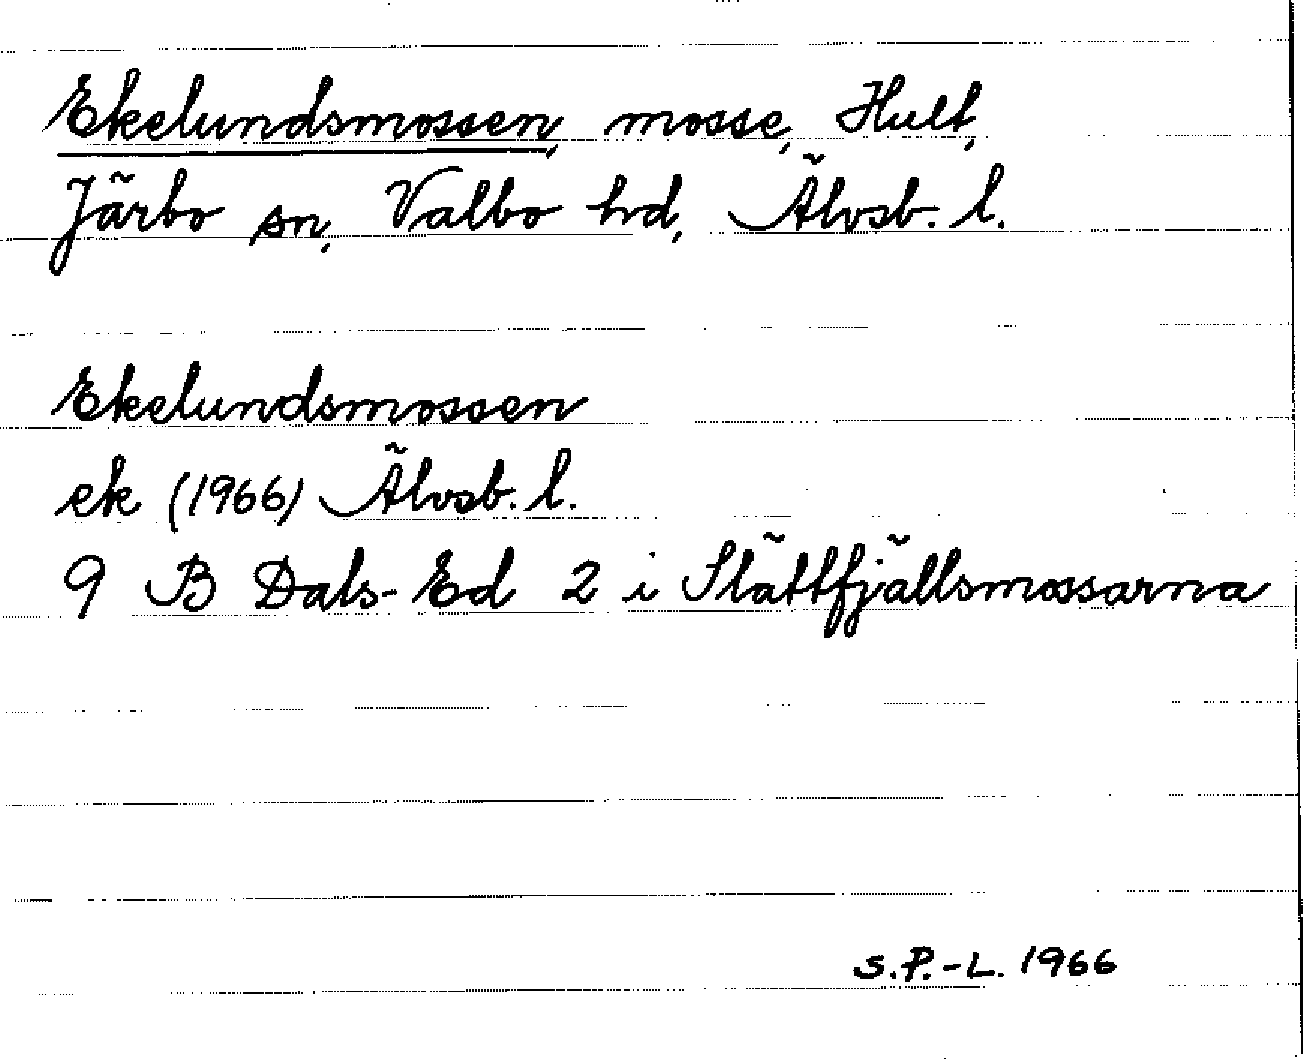 Ekelundsmossen, mosse, Hult,
Järbo sn, Valbo hd, Älvsb. l.
Ekelundsmossen
ek (1966) Älvsb. l.
9 B Dals-Ed 2 i Slättfjällsmossarna
S.P.-L. 1966